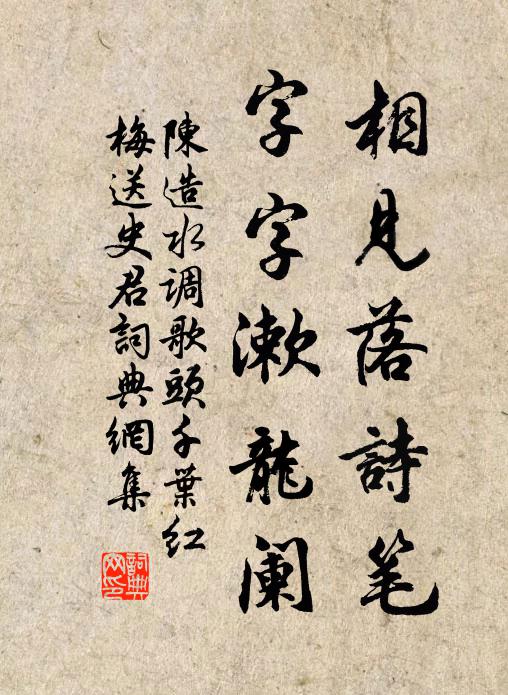 相見落詩笔
字字漱龍阑
陳造水调歌頭千葉红
梅送史君詞典網集
詞典網印